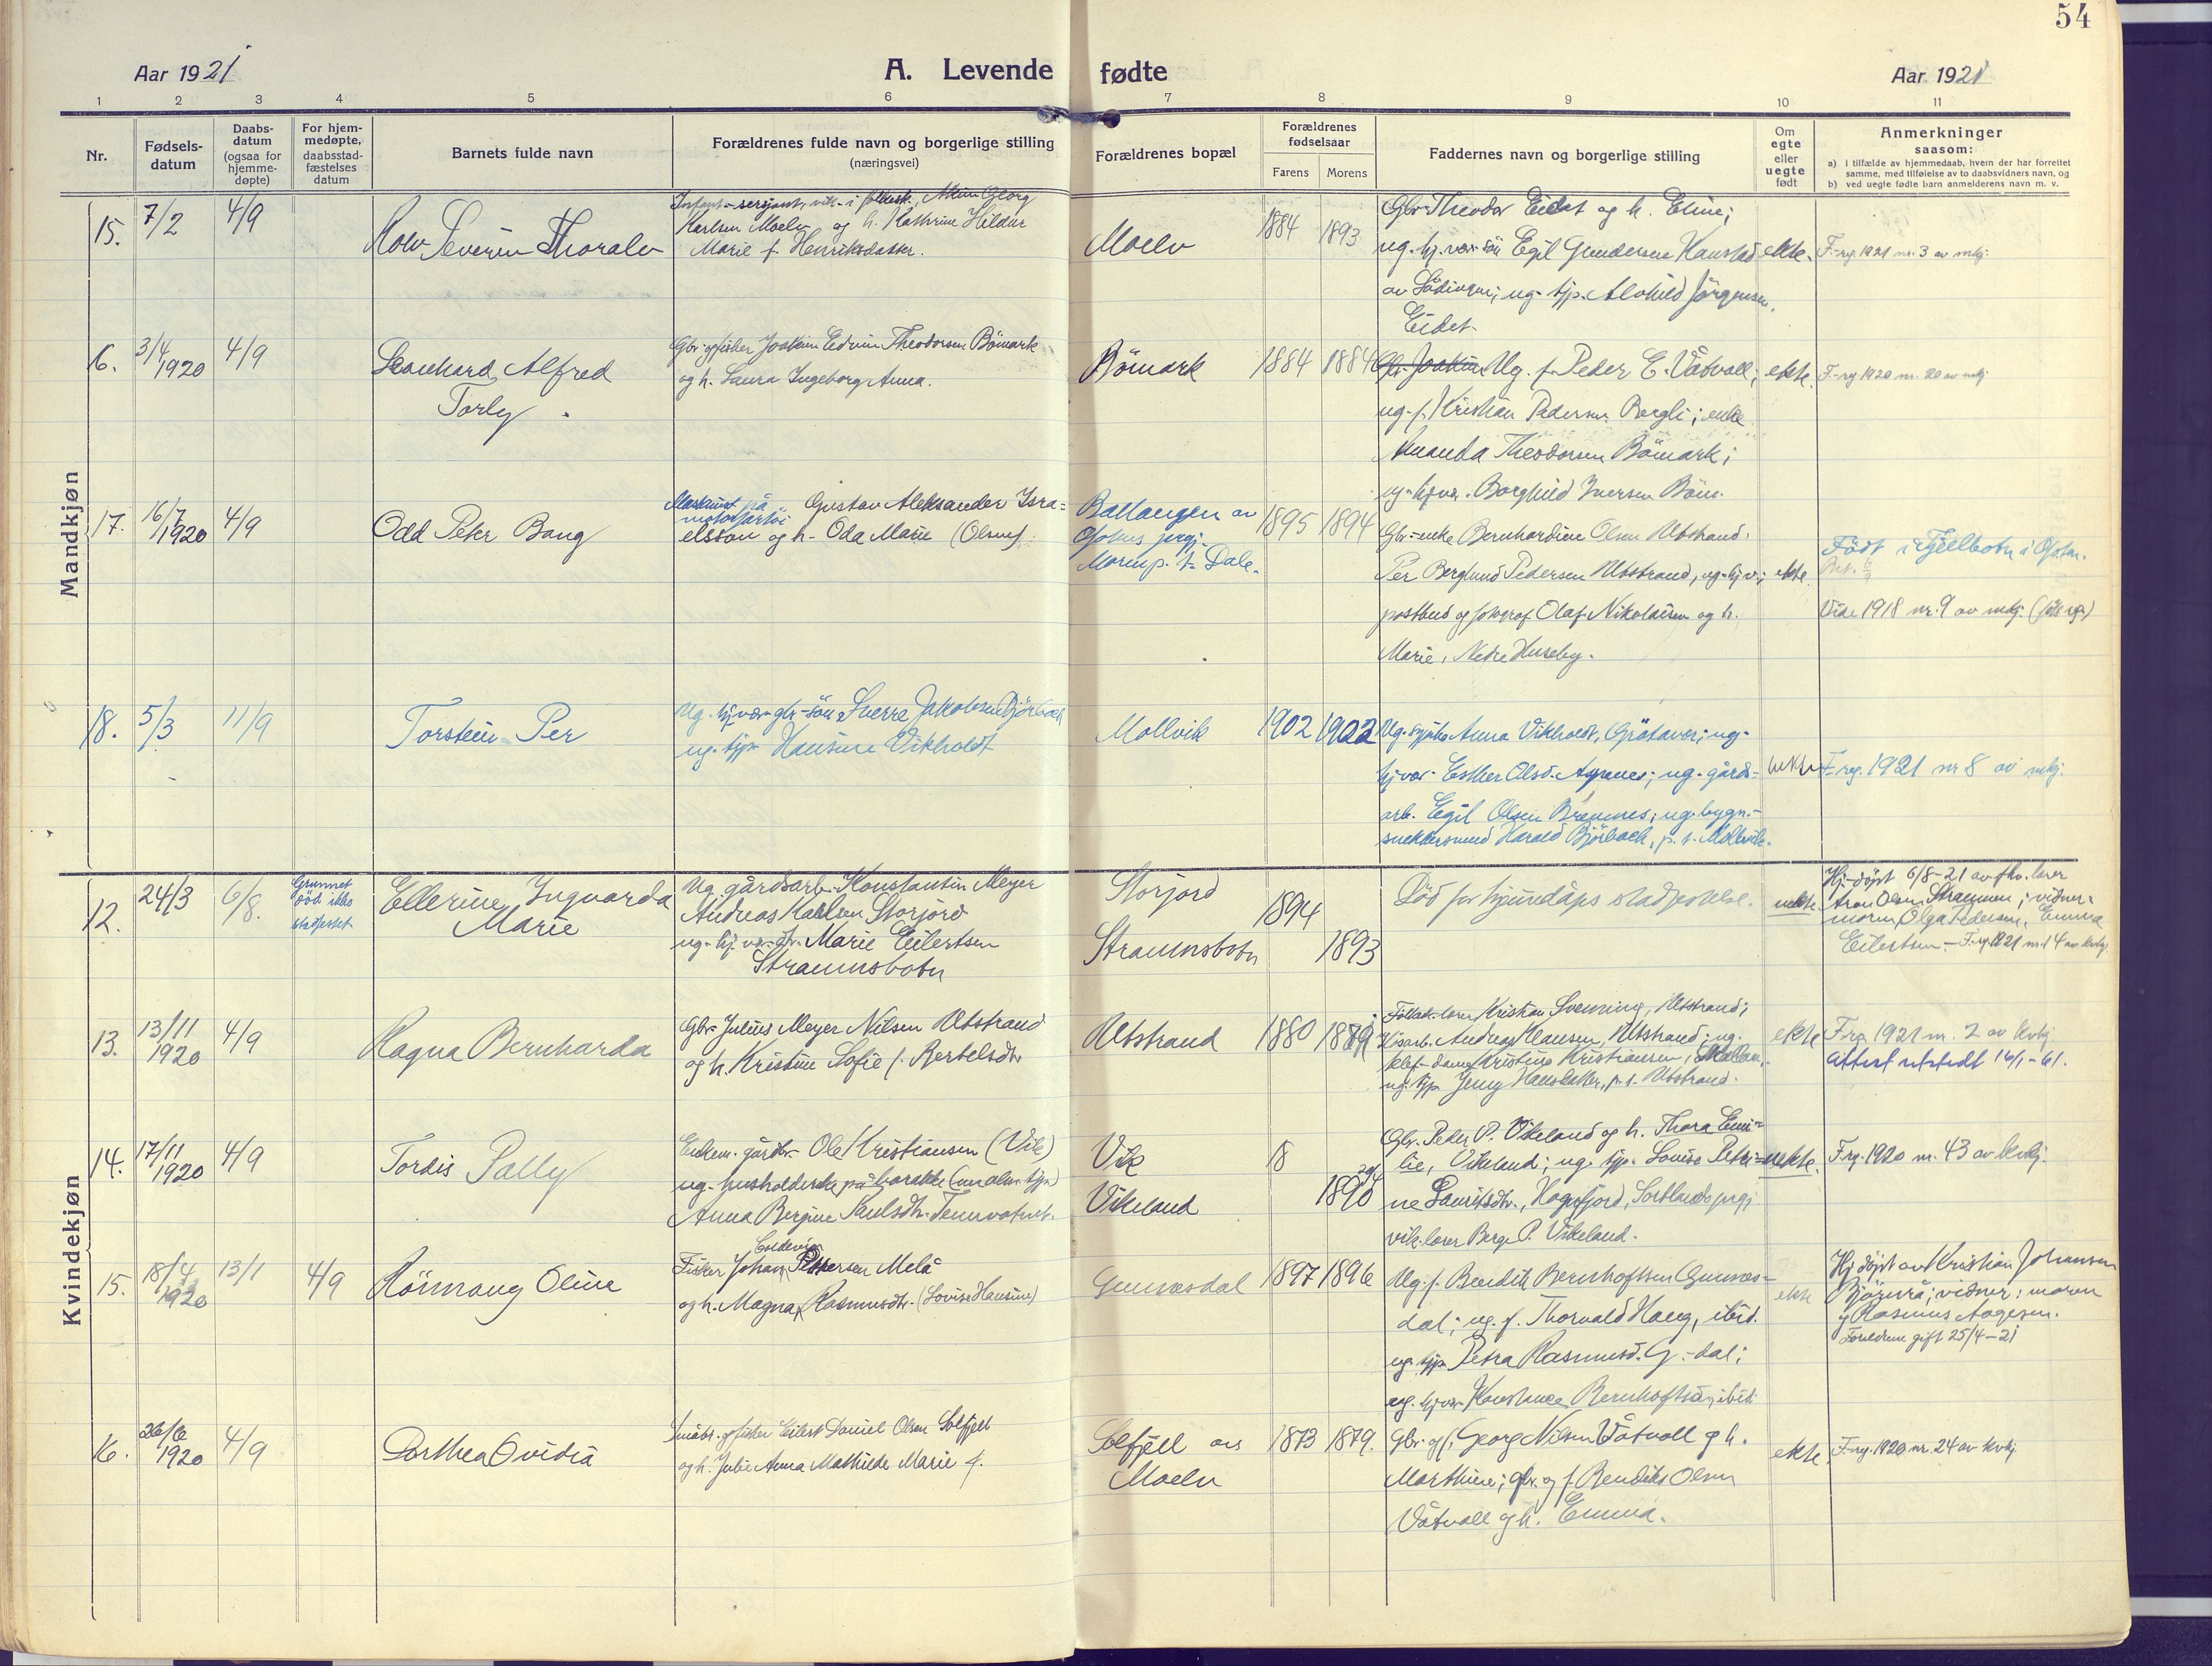 54
Aar 1921
A. Levende fødte
Aar 1921
1 2 3 4 5 6 7 8 9 10 11
Nr.
Fødsels-
datum
Daabs-
datum
(ogsaa for
hjemme-
døpte)
For hjem-
medøpte,
daabsstad-
fæstelses
datum
Barnets fulde navn
Forældrenes fulde navn og borgerlige stilling
(næringsvei)
Forældrenes bopæl
Forældrenes
fødselsaar
Farens Morens
Faddernes navn og borgerlige stilling
Om
egte
eller
uegte
født
Anmerkninger
saasom:
a) i tilfælde av hjemmedaab, hvem der har forrettet
samme, med tilføielse av to daabsvidners navn, og
b) ved uegte fødte barn anmelderens navn m. v.
Mandkjøn
15. 7/2 4/9
Rolv Severin Thoralv
Georg
Karlsen Moelv og h. Kathrine Hildur
Marie f. Henriksdatter.
Moelv
1884 1893
Gbr. Theodor Eidet og h. Eline;
ug. hj.vær. sön Egil Gundersen Kanstad
av Lödingen; ug. tjp. Alvhild Jörgensen,
Eidet.
ekte.
F.-reg. 1921 nr. 3 av mkj.
6. 3/4 1920 4/9
Leonhard Alfred
Torly
Gbr. og fisker Joakim Edvin Theodorsen Bömark
og h. Laura Ingeborg Anna.
Bömark
1884 1884
Gbr. Joakim Ug. f. Peder E. Våtvoll;
ug. f. Kristian Pedersen Bergli; enke
Amanda Theodorsen Bömark;
ug. hjvær. Borghild Iversen Böm.
ekte.
F-reg 1920 nr. 20 av mkj
17. 16/7 1920 4/9
Odd Peter Bang
Maskinist på
motorfartöi
Gustav Aleksander Isra=
elsson og h. Oda Marie (Olsen).
Ballangen av
Ofotens prgj.
Moren p. t. Dale.
1895 1894
Gbr.-enke Bernhardine Olsen Utstrand.
Per Berglund Pedersen Utstrand, ug. hjv;
postbud og fotograf Olaf Nikolaisen og h.
Marie, Nedre Huseby.
ekte
Född i Tjelbotn i Ofoten.
Vide 1918 nr. 9 av mkj.
18. 5/3 11/9
Torstein Per
Ug. hjvær. gbr-sön Sverre Jakobsen Björbæck
ug. tjp. Hansine Vikholdt
Mollvik
1902 1902
Anna Vikholdt, Grötaver; ug.
hjvær. Esther Olsd. Aynes; ug. gårds-
arb. Egil Olsen Bremnes; ug. bygn.-
snekkersvend Harald Björback, p. t. Mollvik.
uekte
F-reg. 1921 nr 8 av mkj.
Kvindekjøn
12. 24/3 6/8.
Grunnet
död ikke
stadfestet
Ellerine Ingvarda
Marie
Ug. gårdsarb. Konstantin Meyer
Andreas Karlsen Storjord
ug. hj.vær. dtr. Marie Eilertsen
Straumsbotn
Storjord
Straumsbotn
1894
1893
Död för hjemdåps stadfestelse.
uekte.
Hj.-döpt 6/8-21 av fhv. lærer
Aron Olsen Straumen; vidner:
moren, Olga Pedersen, Emma
Eilertsen - F-rg. 1921 nr. 4 av kvkj.
13. 13/11 1920 4/9
Ragna Bernharda
Gbr. Julius Meyer Nilsen Utstrand
og h. Kristine Sofie f. Bertelsdtr
Utstrand
1880 1889
Kristian Svenning, Utstrand;
Andreas Hansen, Utstrand; ug.
Kristine Kristiansen,
ug. tjp. Jenny Hansbakken, p. t. Utstrand.
ekte
F-rg. 1921 nr. 2 av kvkj
Attest utstedt 16/1-61.
14. 17/11 1920 4/9
Tordis Pally
Enkem. gårdbr. Ole Kristiansen (Vik)
ug. husholderske på barakke
Anna Bergine Paulsdtr. Tennvatnet.
Vik
Vikeland
18
1890
Gbr. Peder P. Vikeland og h. Thora Emi=
lie, Vikeland; ug. tjp. Lovise Petri=
ne Lauritsdtr., Hognfjord, Sortlands prgj;
vik.lærer Berge P. Vikeland.
uekte.
F-rg. 1920 nr. 43 av kvkj.
15. 18/4 1920 13/1 4/9
Rönnaug Oline
Fisker Johan Pettersen Melå
og h. Magna Rasmusdtr. (Lovise Hansine)
Gunnesdal
1897 1896
Ug. f. Bendik Bernhoftsen Gunnes-
dal; ug. f. Thorvald Haug, ibid.
ug. tjp. Petra Rasmusd. G.-dal;
ug. hjvær Konstance Bernhoftsen, ibid.
ekte
Hj. döpt av Kristian Johansen
Björnrå; vidner: moren
og Rasmus Aagesen.
Foreldrene gift 25/4-21
16. 26/6 1920 4/9
Dorthea Ovidia
Småbr. og fisker Eilert Daniel Olsen Solfjell
og h. Julie Anna Mathilde Marie f.
Solfjell av
Moelv
1873 1879.
Gbr. og f. Georg Nilsen Våtvoll og h.
Marthine; gbr. og f. Bendiks Olsen
Våtvoll og h. Emma.
ekte
F-rg. 1920 nr. 24 av kvkj